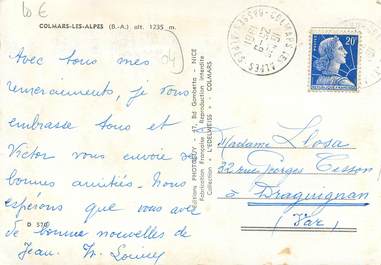 10 €
COLMARS-LES-ALPES (B.-A.) alt. 1235 m.
04
Avec tous mes
remerciements, je vous
embrasse tous et
Victor vous envoie de
bonnes amitiés. Nous
espérons que vous avez
de bonne nouvelles de
Jean.
D 370
Editions PHOTOGUY - 47, Bd Gambetta - NICE
Fabrication Française - Reproduction interdite
Collection "L'EDELWEISS"
COLMARS-LES-ALPES
BASSES-ALPES
20F
REPUBLIQUE FRANÇAISE
Madame Llosa
32 rue Georges Cisson
à Draguignan
(Var)